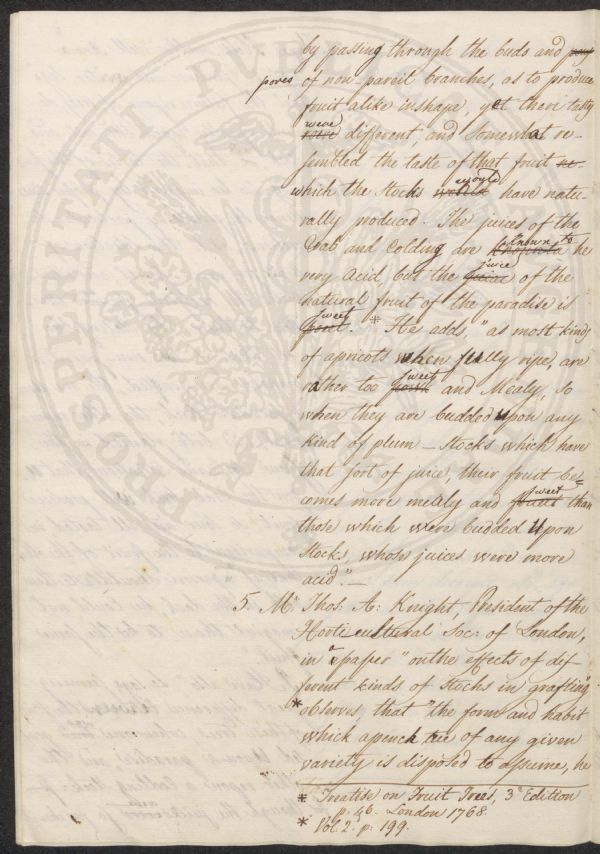 by passing through the buds and
pores of non-pareil branches, as to produce
fruit alike in shape, yet their tasty
were different, and somewhat re-
sembled the taste of that fruit
which the stocks would have natu-
rally produced. The juices of the
Crab and Colding are known to be
very acid, but the juice of the
natural fruit of the paradise is
sweet. * He adds, "as most kinds
of apricots when fully ripe, are
rather too sweet and Mealy, so
when they are budded upon any
kind of plum - Stocks which have
that sort of juice, their fruit be=
comes more mealy and sweet than
those which were budded upon
Stocks, whose juices were more
acid."—
5. Mr. Thos: A: Knight, President of the
Horticultural Soc: of London,
in a paper "on the effects of dif
ferent kinds of Stocks in grafting"
* observes, that "the form and habit
which a peach tree of any given
variety is disposed to assume, he
* Treatise on Fruit Trees, 3d Edition
p: 46. London 1768.
* Vol 2. p: 199.
PROSPERITATI PUBLICAE